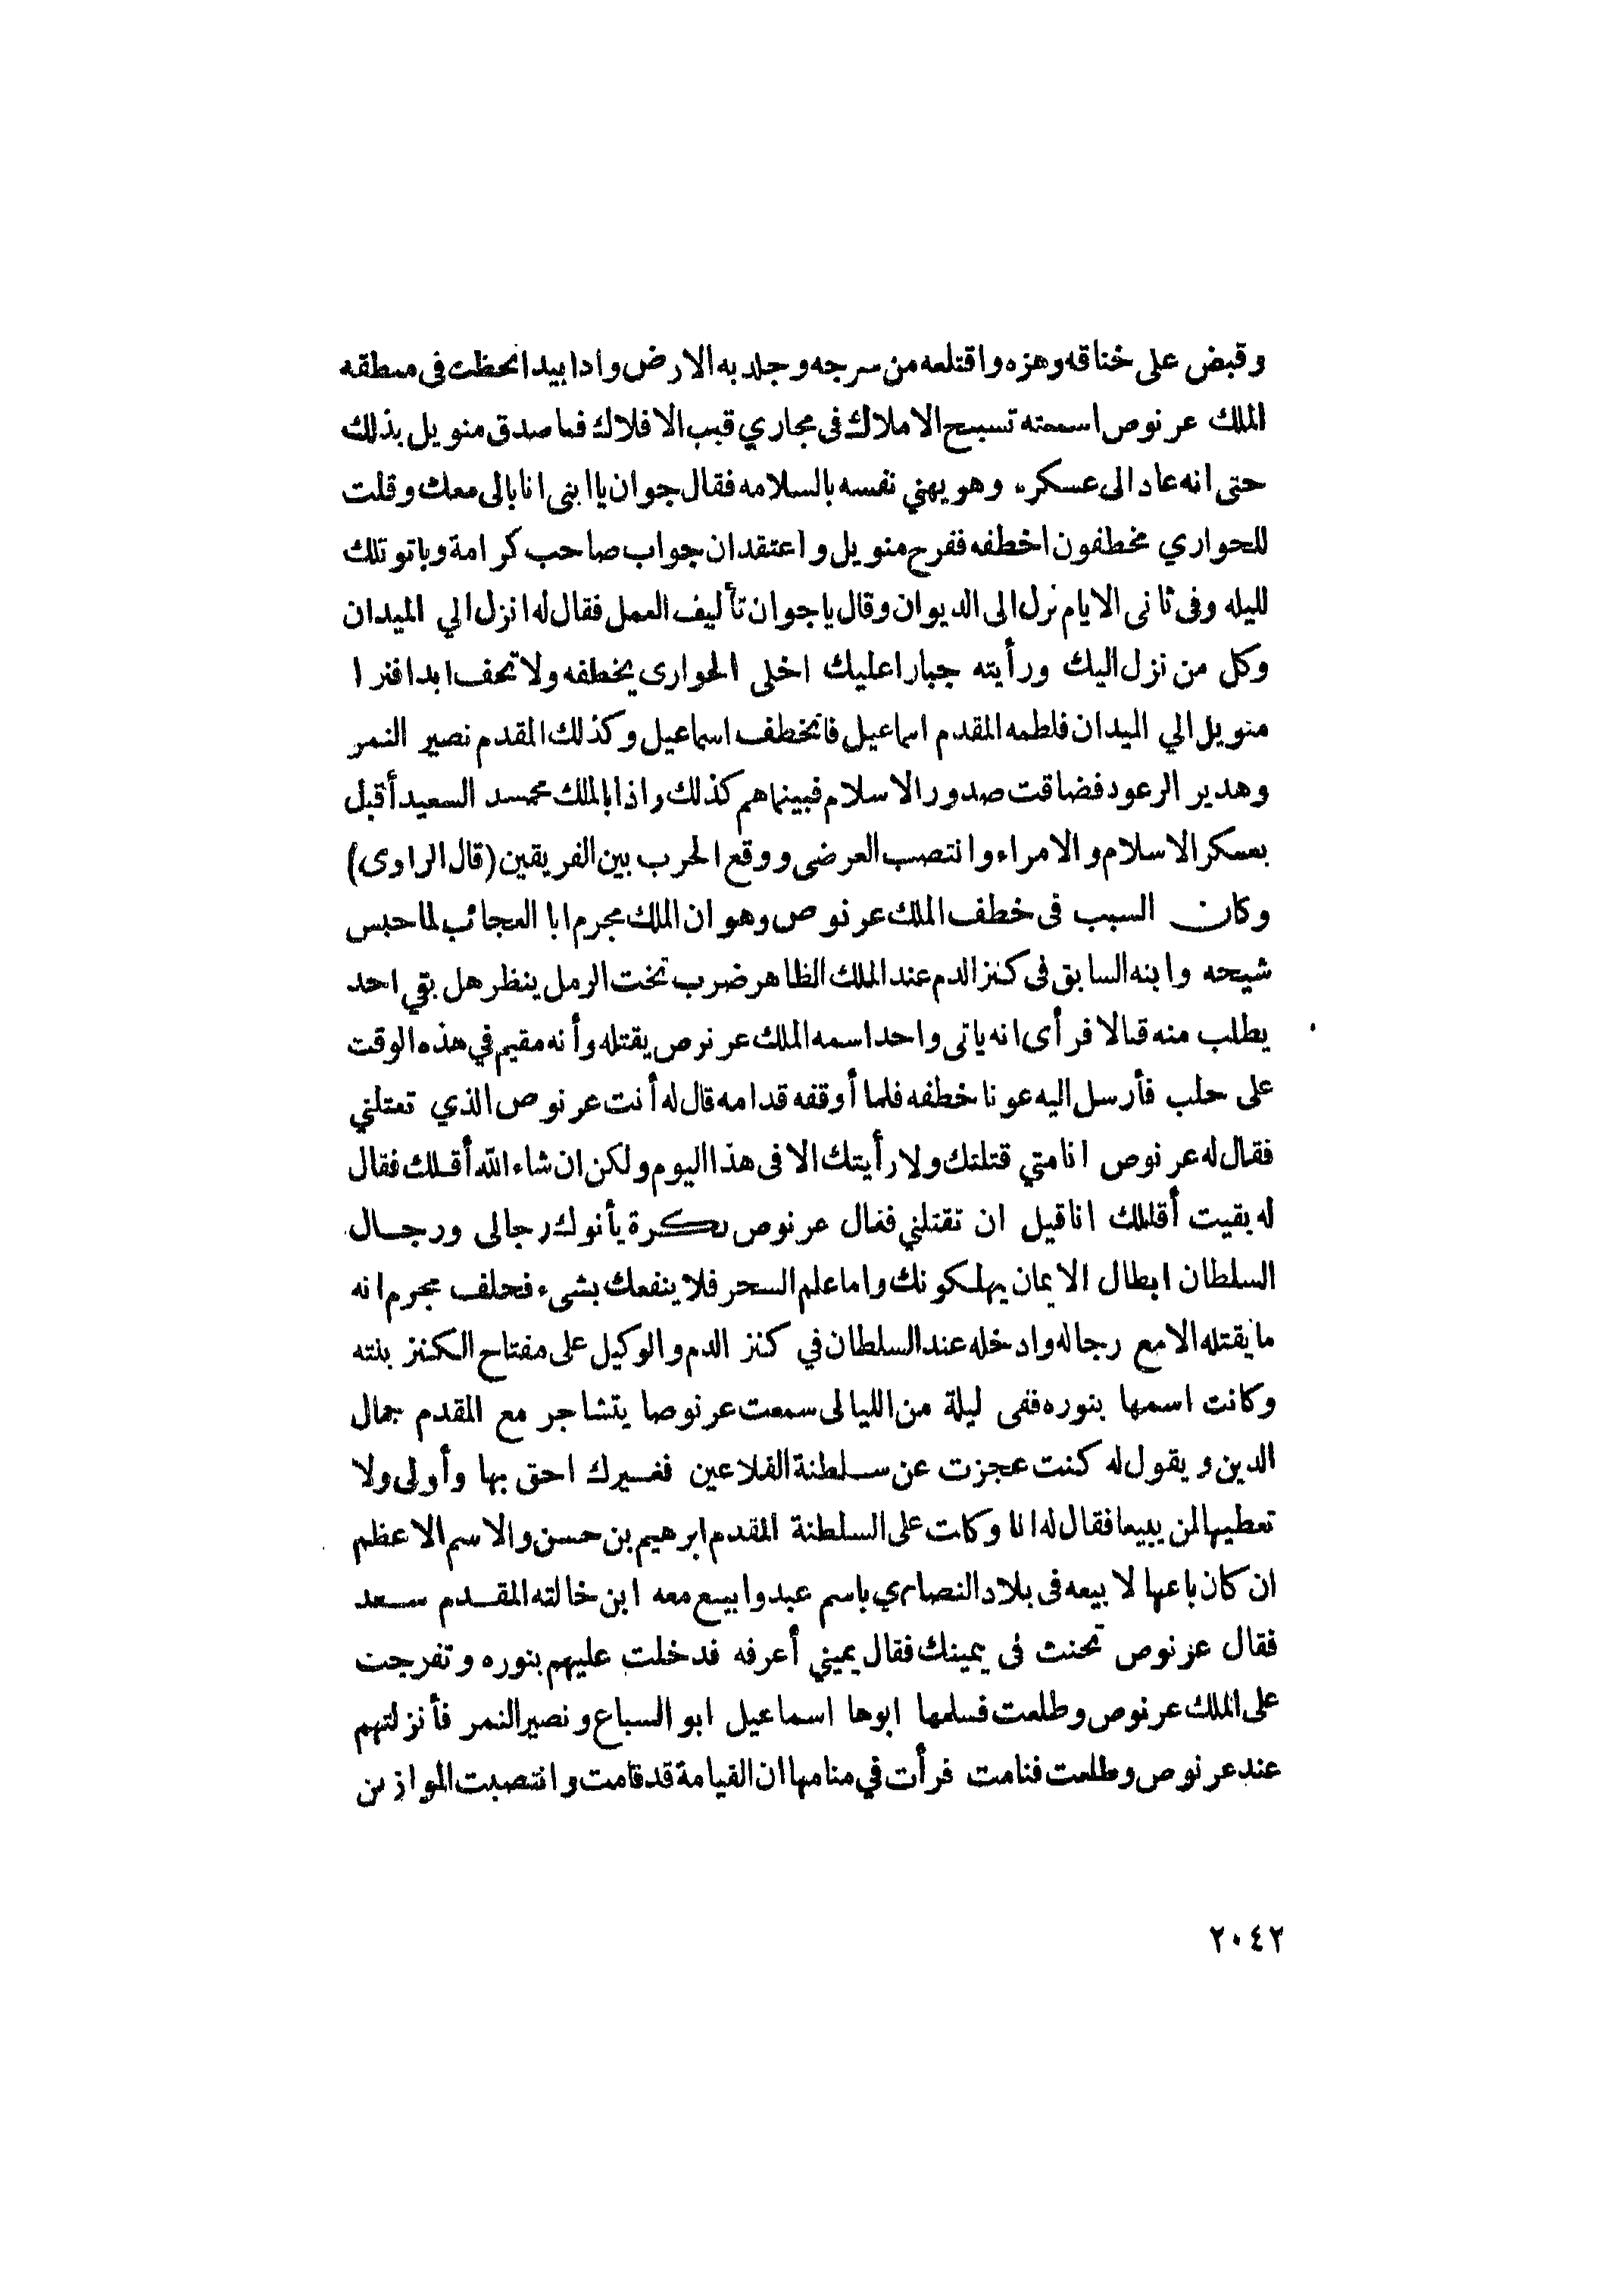 وقبض على خناقه وهزه واقتلعه من سرجه وجلد به الارض وادا بيد انحظت فى مطقه
الملك عرنوص اسمعته تسبيح الاملاك فى مجاري قبب الافلاك فما صدق منويل بذلك
حتى انه عاد الى عسكره وهو يهني نفسه بالسلامه فقال جوان يا ابنى انا بالى معك وقلت
للحواري مخطفون اخطفه ففرح منويل واعتقد ان جواب صاحب كرامة وباتو تلك
لليله وفى ثانى الايام نزل الى الديوان وقال يا جوان تأليف العمل فقال له انزل الي الميدان
وكل من نزل اليك ورأيته جبارا عليك اخلى الحوارى يخطفه ولا تخف ابدا فنزا
منويل الي الميدان فلطمه المقدم اسماعيل فانخطف اسماعيل وكذلك المقدم نصير النمر
وهدير الرعود فضاقت صدور الاسلام فبينما هم كذلك واذا بالملك محمد السعيد أقبل
بعسكر الاسلام والامراء وانتصب العرضى ووقع الحرب بين الفريقين (قال الراوى)
وكان السبب فى خطف الملك عرنوص وهو ان الملك مجرم ابا العجائب لما حبس
شيحه وابنه السابق فى كنز الدم عند الملك الظاهر ضرب تخت الرمل ينظر هل بقي احد
يطلب منه قتالا فرأى انه ياتى واحد اسمه الملك عرنرص يقتله وأنه مقيم في هذه الوقت
على حلب فأرسل اليه عونا خطفه فلما أوقفه قدامه قال له أنت عرنوص الذي تعتلني
فقال له عرنوص انا متي قتلتك ولا رأيتك الا فى هذا اليوم ولكن ان شاء الله أقتلك فقال
له بقيت أقتلك انا قبل ان تقتلني فقال عرنوص بكرة يأتوك رجالى ورجال
السلطان ابطال الايمان يهلكونك واما علم السحر فلا ينفعك بشىء فحلف مجرم انه
ما يقتله الا مع رجاله وادخله عند السلطان في كنز الدم والوكيل على مفتاح الكنز بنته
وكانت اسمها بنوره ففى ليلة من الليالى سمعت عرنوصا يتشاجر مع المقدم جمال
الدين ويقول له كنت عجزت عن سلطنة القلاعين فغيرك احق بها وأولى ولا
تعطيها لمن يبيعا فقال له انا وكلت على السلطنة المقدم ابرهيم بن حسن والاسم الاعظم
ان كان باعها لابيعه فى بلاد النصاري باسم عبد وابيع معه ابن خالته المقدم سعد
فقال عرنوص تحنث فى يمينك فقال يميني أعرفه فدخلت عليهم بنوره وتفرجت
على الملك عرنوص وطلعت فسلمها ابوها اسماعيل ابو السباع ونصير النمر فأنزلتهم
عند عرنوص وطلعت فنامت فرأت في منامها ان القيامة قد قامت وانتصبت الموازين
٢٠٤٢